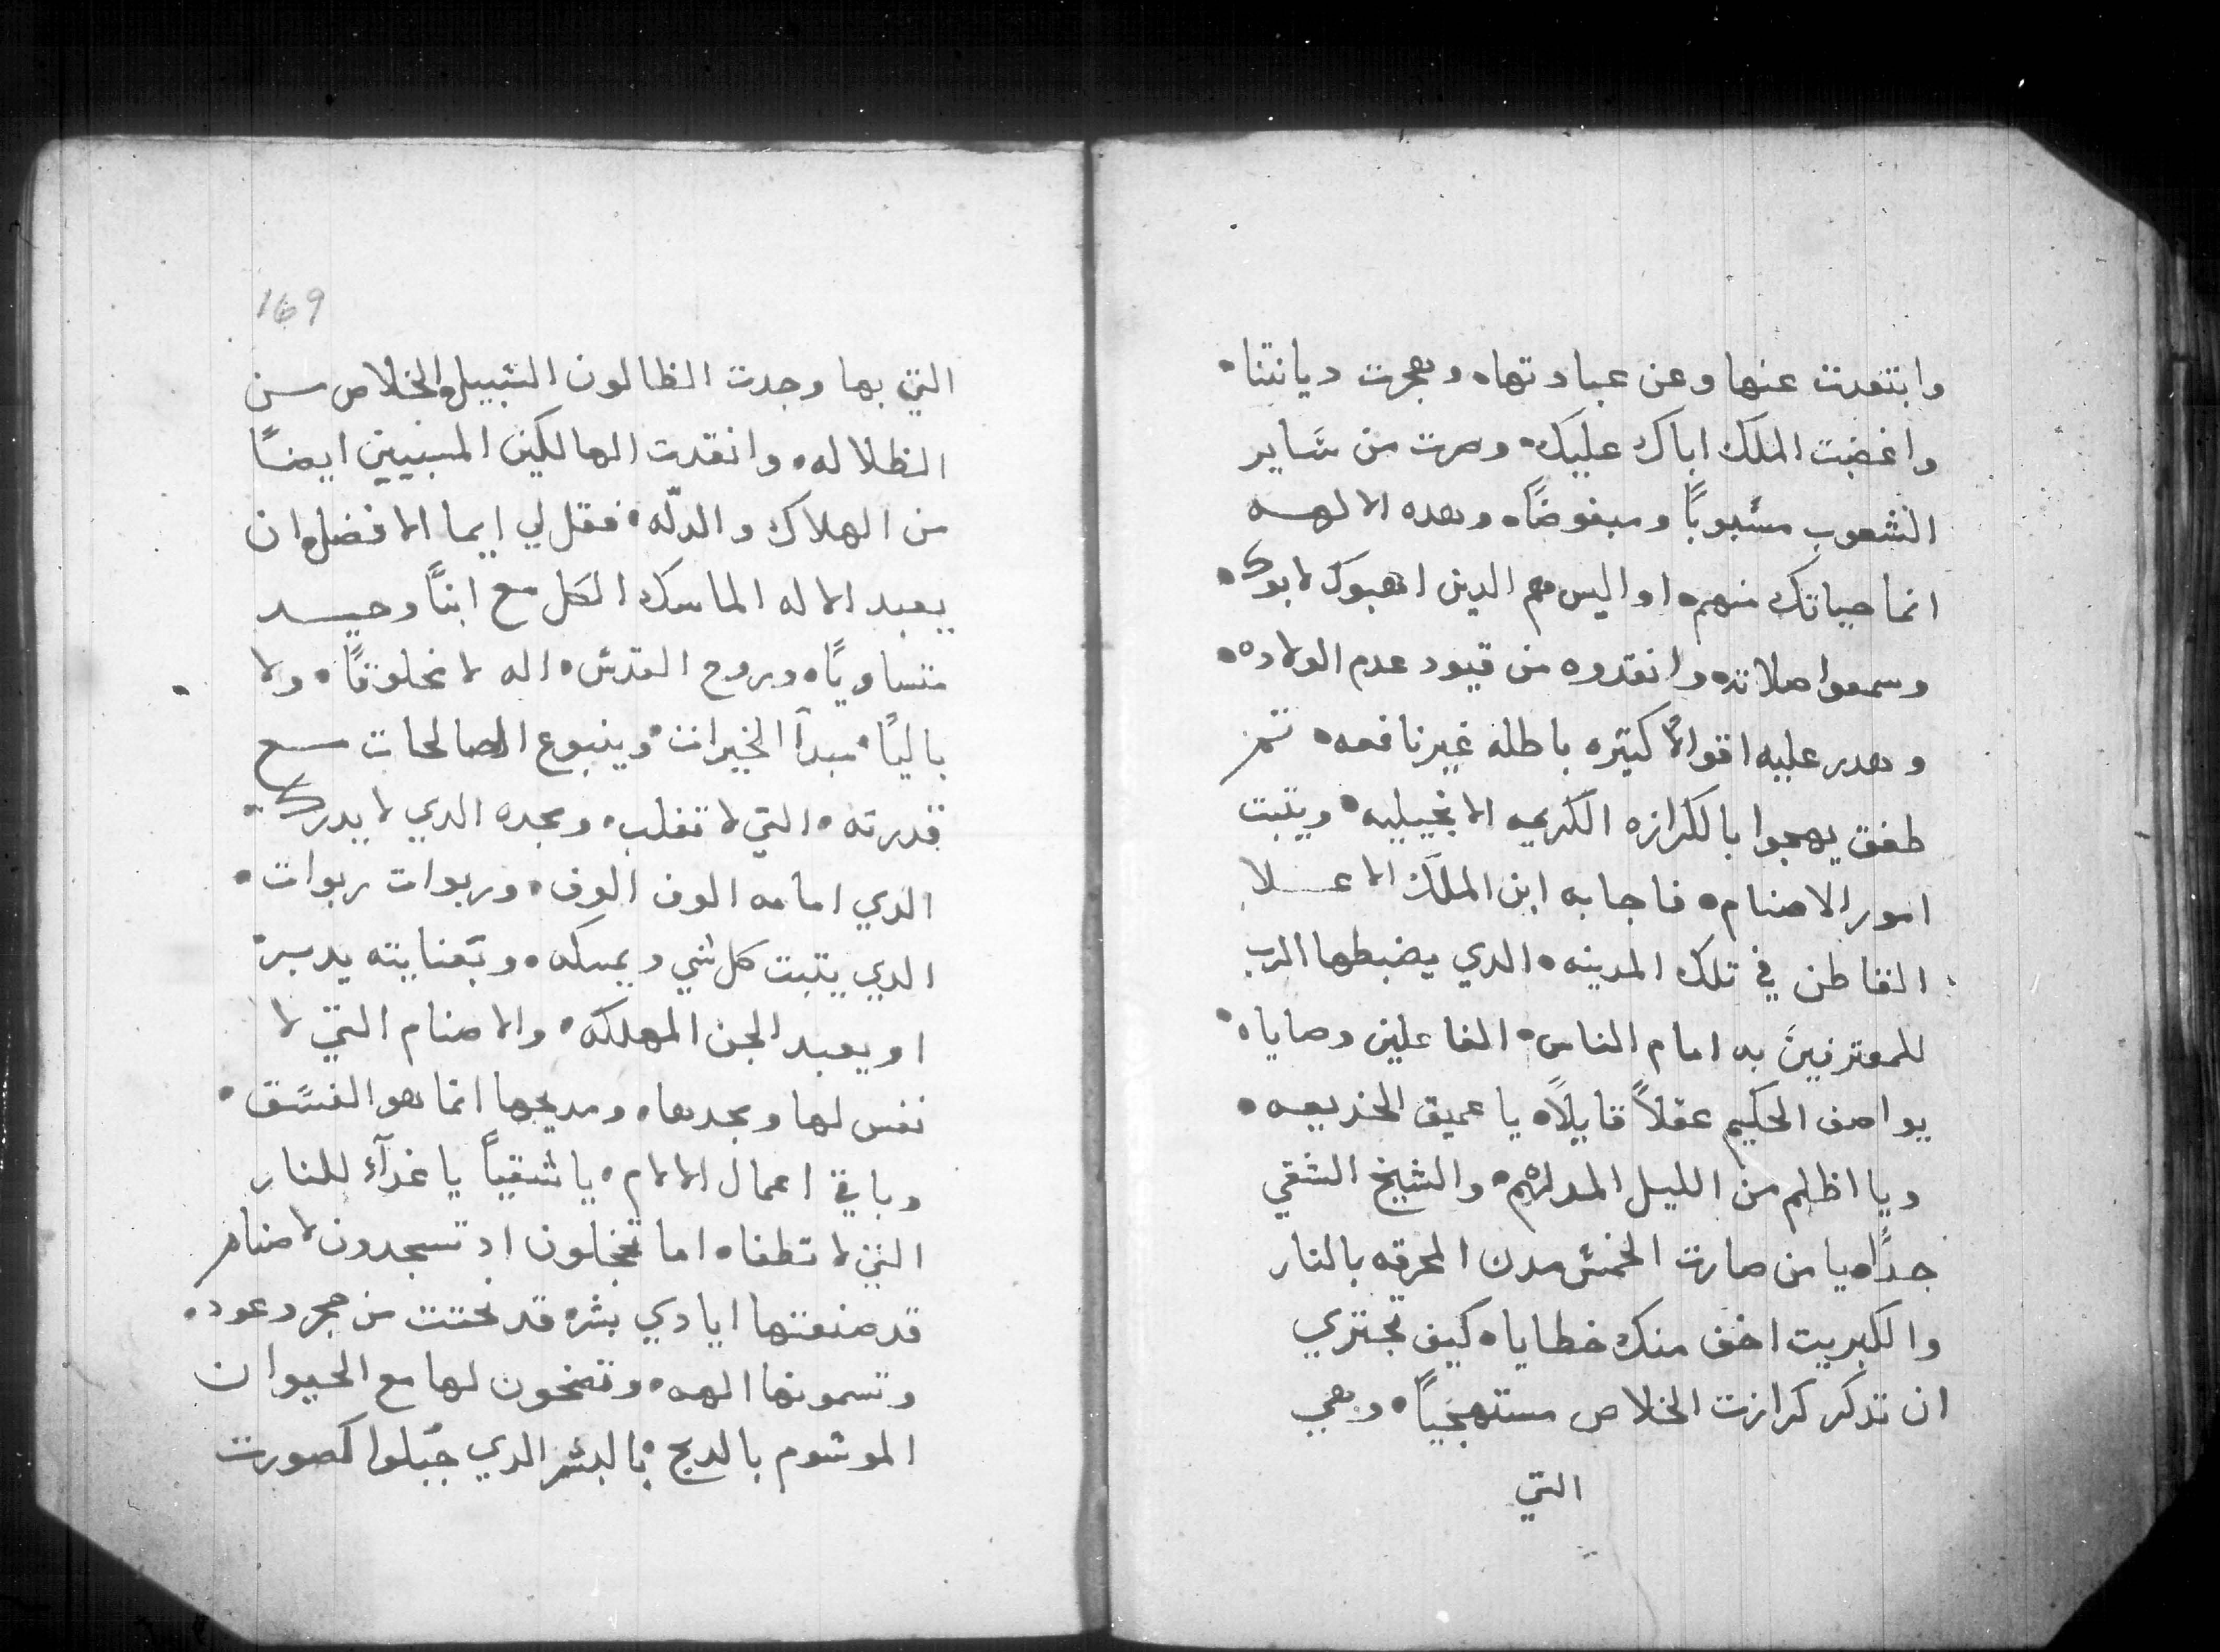 وابتعدت عنها وعن عبادتها، وهجرت ديانتنا.
واغضبت الملك اباك عليك. وصرت من ساير
الشعوب مسبوباً ومبغوضاً. وهده الالهه
انما حياتك منهم. او اليس هم الدين اهبوك لابوك.
وسمعوا صلاته وانقدوه من قيود عدم الولاده.
وهدر عليه اقوالاً كتيره باطله غير نافعه. تم
طفق يهجوا بالكرازه الكريمه الانجيليه. ويتبت
امور الاصنام. فاجابه ابن الملك الاعلا
القاطن في تلك المدينه. الدي يضبطها الرب
للمعترفين به امام الناس. الفاعلين وصاياه.
يواصف الحكيم عقلاً قايلاً. يا عميق الخديعه.
ويا اظلم من الليل المدلهم. والشيخ الشقي
جداً. يا من صارت الخمس مدن المحرقه بالنار
والكبريت اخف منك خطايا. كيف تجتري
ان تدكر كرازت الخلاص مستهجياً. وهي
التي
169
التي بها وجدت الظالون السبيل والخلاص من
الظلاله. وانقدت الهالكين المسبيين ايضاً
من الهلاك والدلّه. فقل لي ايما الافضل ان
يعبد الاله الماسك الكل مع ابناً وحيد
متساوياً. وروح القدس. اله لا مخلوقاً. ولا
بالياً. مبدآ الخيرات. وينبوع الصالحات مع
قدرته. التي لا تغلب. ومجده الدي لا يدرك.
الدي امامه الوف الوف. وربوات ربوات.
الدي يتبت كل شي ويمسكه. وبعنايته يدبر
او يعبد الجن المهلكه. والاصنام التي لا
نفس لها ومجدها. ومديحها انما هو الفسق.
وباقي اعمال الالام. يا شقياً يا غدآء للنار
التي لا تطفا. اما تخجلون اد تسجدون لاصنام
قد صنعتها ايادي بشره قد نحتت من حجر وعود.
وتسمونها الهه. وتضحون لها مع الحيوان
الموشوم بالدبح. بالبشر الدي جبلوا كصورت